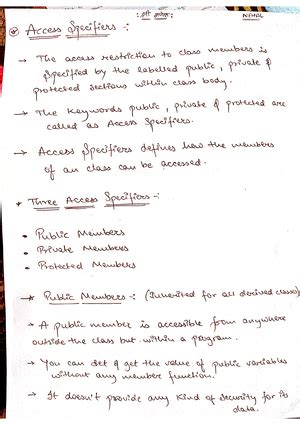 NIHAL
* Access Specifiers -:
→ The access restriction to class members is
specified by the labelled public, private &
protected sections within class body.
→ The keywords public, private & protected are
called as Access Specifiers.
→ Access Specifiers defines how the members
of an class can be accessed.
* Three Access Specifiers -:
• Public Members
• Private Members
• Protected Members
* Public Members -: (Inherited for all derived classes)
→ A public member is accessible from anywhere
outside the class but within a program.
→ You can set & get the value of public variables
without any member function.
→ It doesn't provide any kind of security for its
data.